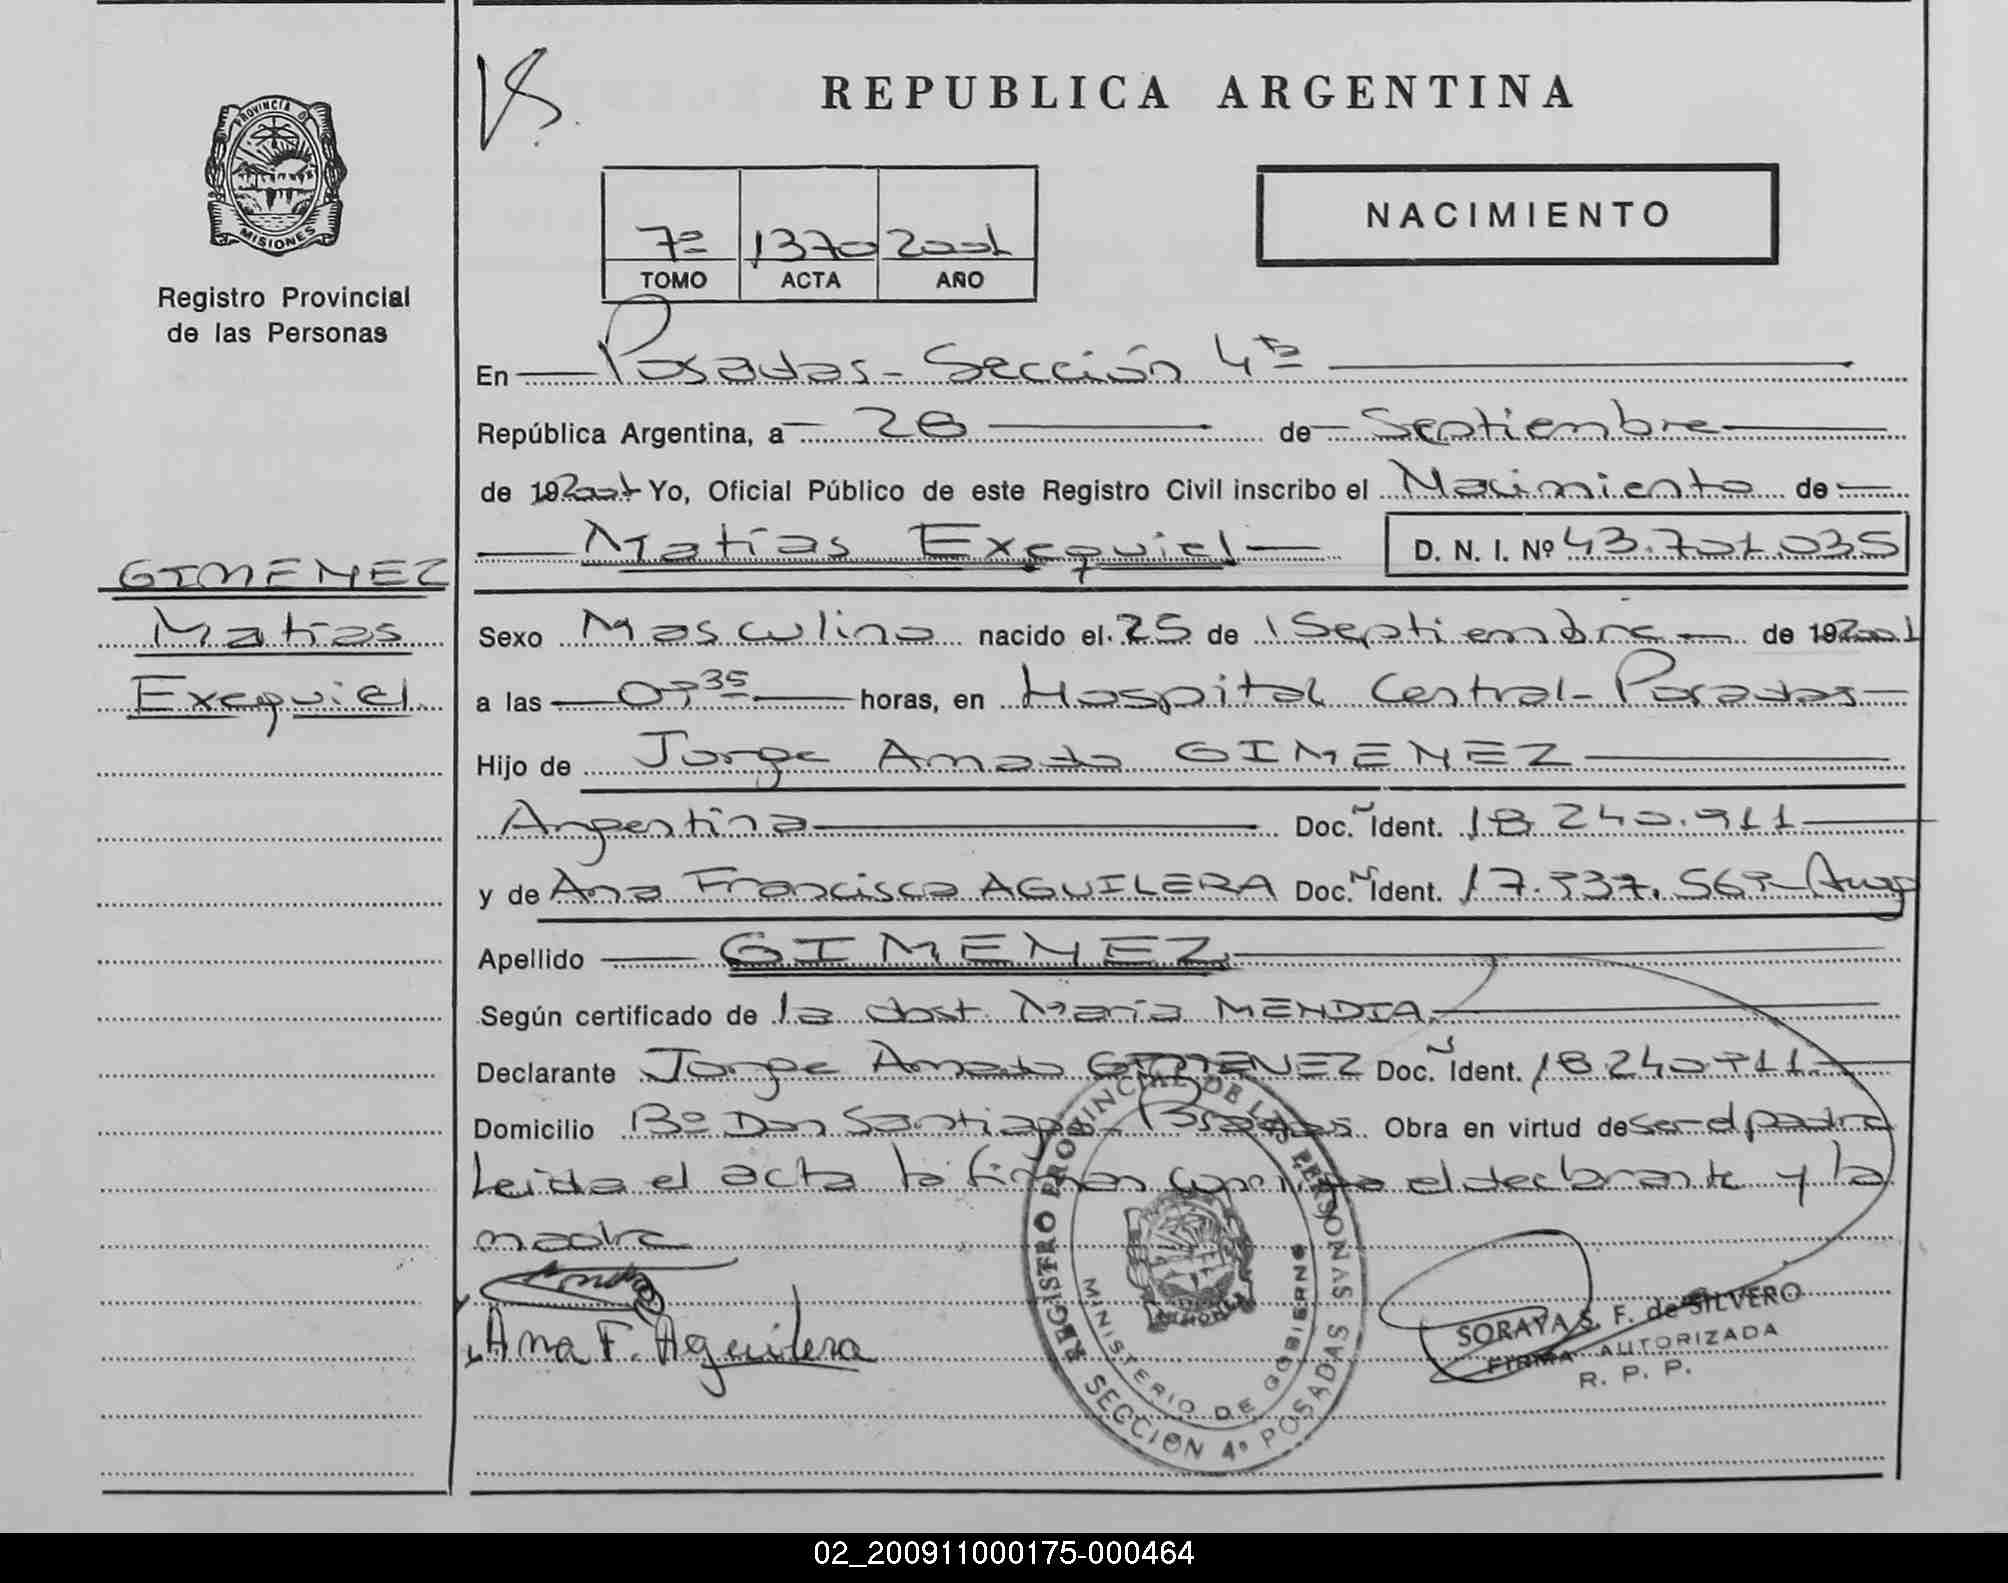 PROVINCIA DE
MISIONES
Registro Provincial
de las Personas
GIMENEZ
Matías
Exequiel
REPUBLICA ARGENTINA
7º 1370 2001
TOMO ACTA AÑO
NACIMIENTO
En Posadas - Sección 4ta
República Argentina, a 28 de Septiembre
de 192001 Yo, Oficial Público de este Registro Civil inscribo el Nacimiento de
Matías Exequiel D. N. I. Nº 43.701.035
Sexo Masculino nacido el 25 de Septiembre de 192001
a las horas, en Hospital Central - Posadas
Hijo de Jorge Amado GIMENEZ
Argentina Doc. Ident. 18.240.911
y de Ana Francisca AGUILERA Doc. Ident. Arg
Apellido GIMENEZ
Según certificado de la obst. María MENDIA
Declarante Jorge Amado GIMENEZ Doc. Ident. 18.240.911
Domicilio Bº Don Santiago - Posadas. Obra en virtud de ser el padre
Leída el acta la firman conmigo el declarante y la
madre
Ana F. Aguilera
REGISTRO PROVINCIAL DE LAS PERSONAS
MINISTERIO DE GOBIERNO
SECCION 4º POSADAS
SORAYA S. F. de SILVERO
FIRMA AUTORIZADA
R. P. P.
02_200911000175-000464